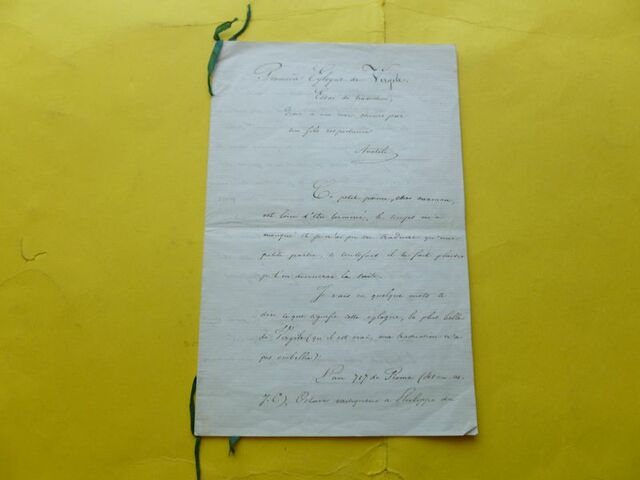 Première Eglogue de Virgile.
Essai de traduction,
dédié à ma mère chérie par
son fils respectueux
Anatole
Ce petit poème, chère maman,
est loin d'être terminé, le temps m'a
manqué et je n'ai pu en traduire qu'une
petite partie, si toutefois il te fait plaisir
je t'en donnerai la suite.
Je vais en quelques mots te
dire ce que signifie cette églogue, la plus belle
de Virgile (qu'il est vrai, ma traduction n'a
pas embellie).
L'an 717 de Rome (av.
J.C), Octave vainqueur à Philippe du